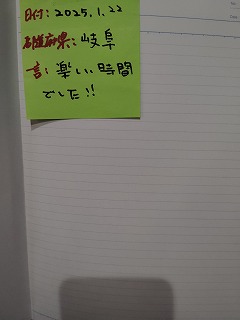 日付：2025.1.22
都道府県：岐阜
一言：楽しい時間
でした！！